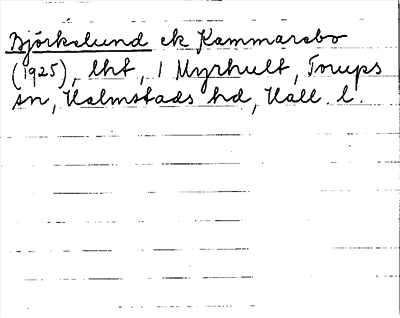 Björkelund ek Kammarebo
(1925), lht, 1 Myrhult, Torups
sn, Halmstads hd, Hall. l.